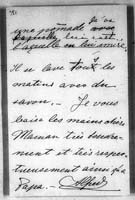 Je l'ai
une pommade avec
laquelle
Il se lave tous les
matins avec du
savon. — Je vous
baise les mains chère
Maman très tendre-
ment et très respec-
tueusement ainsi qu'à
Papa.